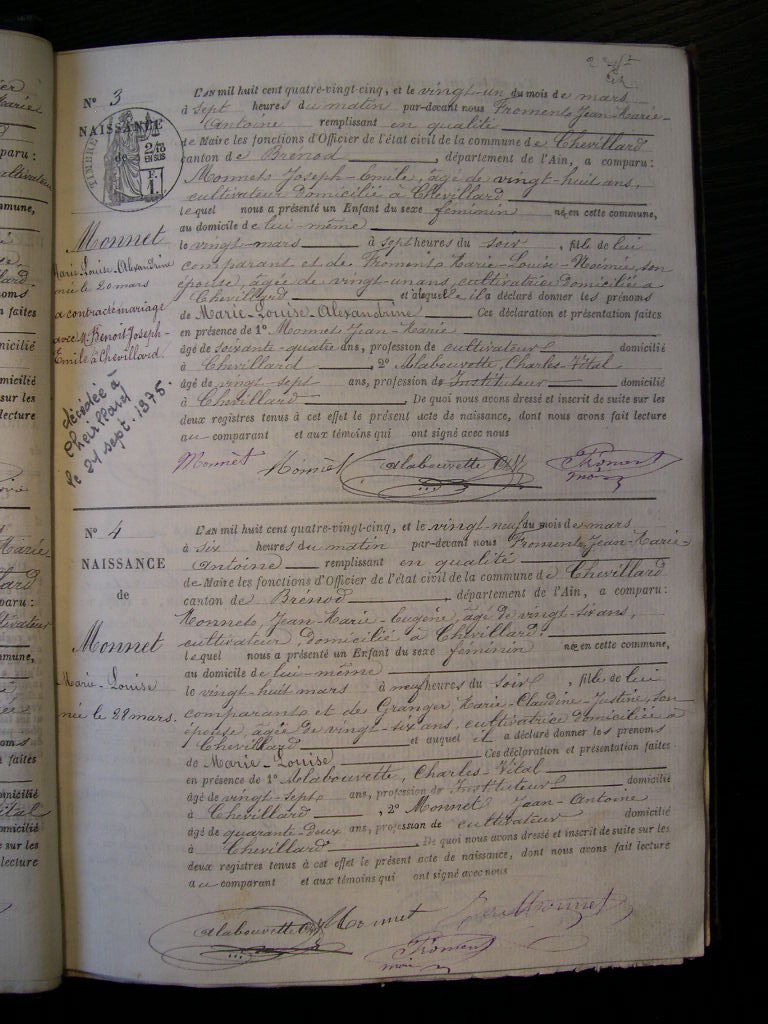 N° 3
NAISSANCE
de
TIMBRE
2/10
EN SUS
F.
1.
Monnet
Marie-Louise-Alexandrine
née le 20 mars
a contracté mariage
avec M. Benoit Joseph-
Emile à Chevillard.
décédée à
Chevillard
le 21 sept. 1975.
L'AN mil huit cent quatre-vingt-cinq, et le vingt-un du mois de mars
à sept heures du matin par-devant nous Froment, Jean-Marie-
Antoine remplissant en qualité
de Maire les fonctions d'Officier de l'état civil de la commune de Chevillard
canton de Brénod, département de l'Ain, a comparu :
Monnet, Joseph-Emile, âgé de vingt-huit ans,
cultivateur domicilié à Chevillard
lequel nous a présenté un Enfant du sexe féminin né en cette commune,
au domicile de lui-même
le vingt mars à sept heures du soir, fille de lui
comparant et de Froment, Marie-Louise-Noémie, son
épouse, âgée de vingt-un ans, cultivatrice domiciliée à
Chevillard et à laquelle il a déclaré donner les prénoms
de Marie-Louise-Alexandrine Ces déclaration et présentation faites
en présence de 1° Monnet Jean-Marie
âgé de soixante-quatre ans, profession de cultivateur domicilié
à Chevillard, 2° Alabouvette, Charles-Vital
âgé de vingt-sept ans, profession d'instituteur domicilié
à Chevillard. De quoi nous avons dressé et inscrit de suite sur les
deux registres tenus à cet effet le présent acte de naissance, dont nous avons fait lecture
au comparant et aux témoins qui ont signé avec nous
Monnet Monnet Alabouvette Ch. V. Froment
maire
N° 4
NAISSANCE
de
Monnet
Marie-Louise
née le 28 mars.
L'AN mil huit cent quatre-vingt-cinq, et le vingt-neuf du mois de mars
à six heures du matin par-devant nous Froment, Jean-Marie-
Antoine remplissant en qualité
de Maire les fonctions d'Officier de l'état civil de la commune de Chevillard
canton de Brénod, département de l'Ain, a comparu :
Monnet, Jean-Marie-Eugène, âgé de vingt-six ans,
cultivateur, domicilié à Chevillard.
lequel nous a présenté un Enfant du sexe féminin né en cette commune,
au domicile de lui-même
le vingt-huit mars à neuf heures du soir, fille de lui
comparant et de Granger, Marie-Claudine-Justine, son
épouse, âgée de vingt-six ans, cultivatrice domiciliée à
Chevillard et auquel il a déclaré donner les prénoms
de Marie-Louise Ces déclaration et présentation faites
en présence de 1° Alabouvette, Charles-Vital
âgé de vingt-sept ans, profession d'instituteur domicilié
à Chevillard, 2° Monnet Jean-Antoine
âgé de quarante-deux ans, profession de cultivateur domicilié
à Chevillard. De quoi nous avons dressé et inscrit de suite sur les
deux registres tenus à cet effet le présent acte de naissance, dont nous avons fait lecture
au comparant et aux témoins qui ont signé avec nous
Alabouvette Ch. V. Monnet Monnet
Froment
maire